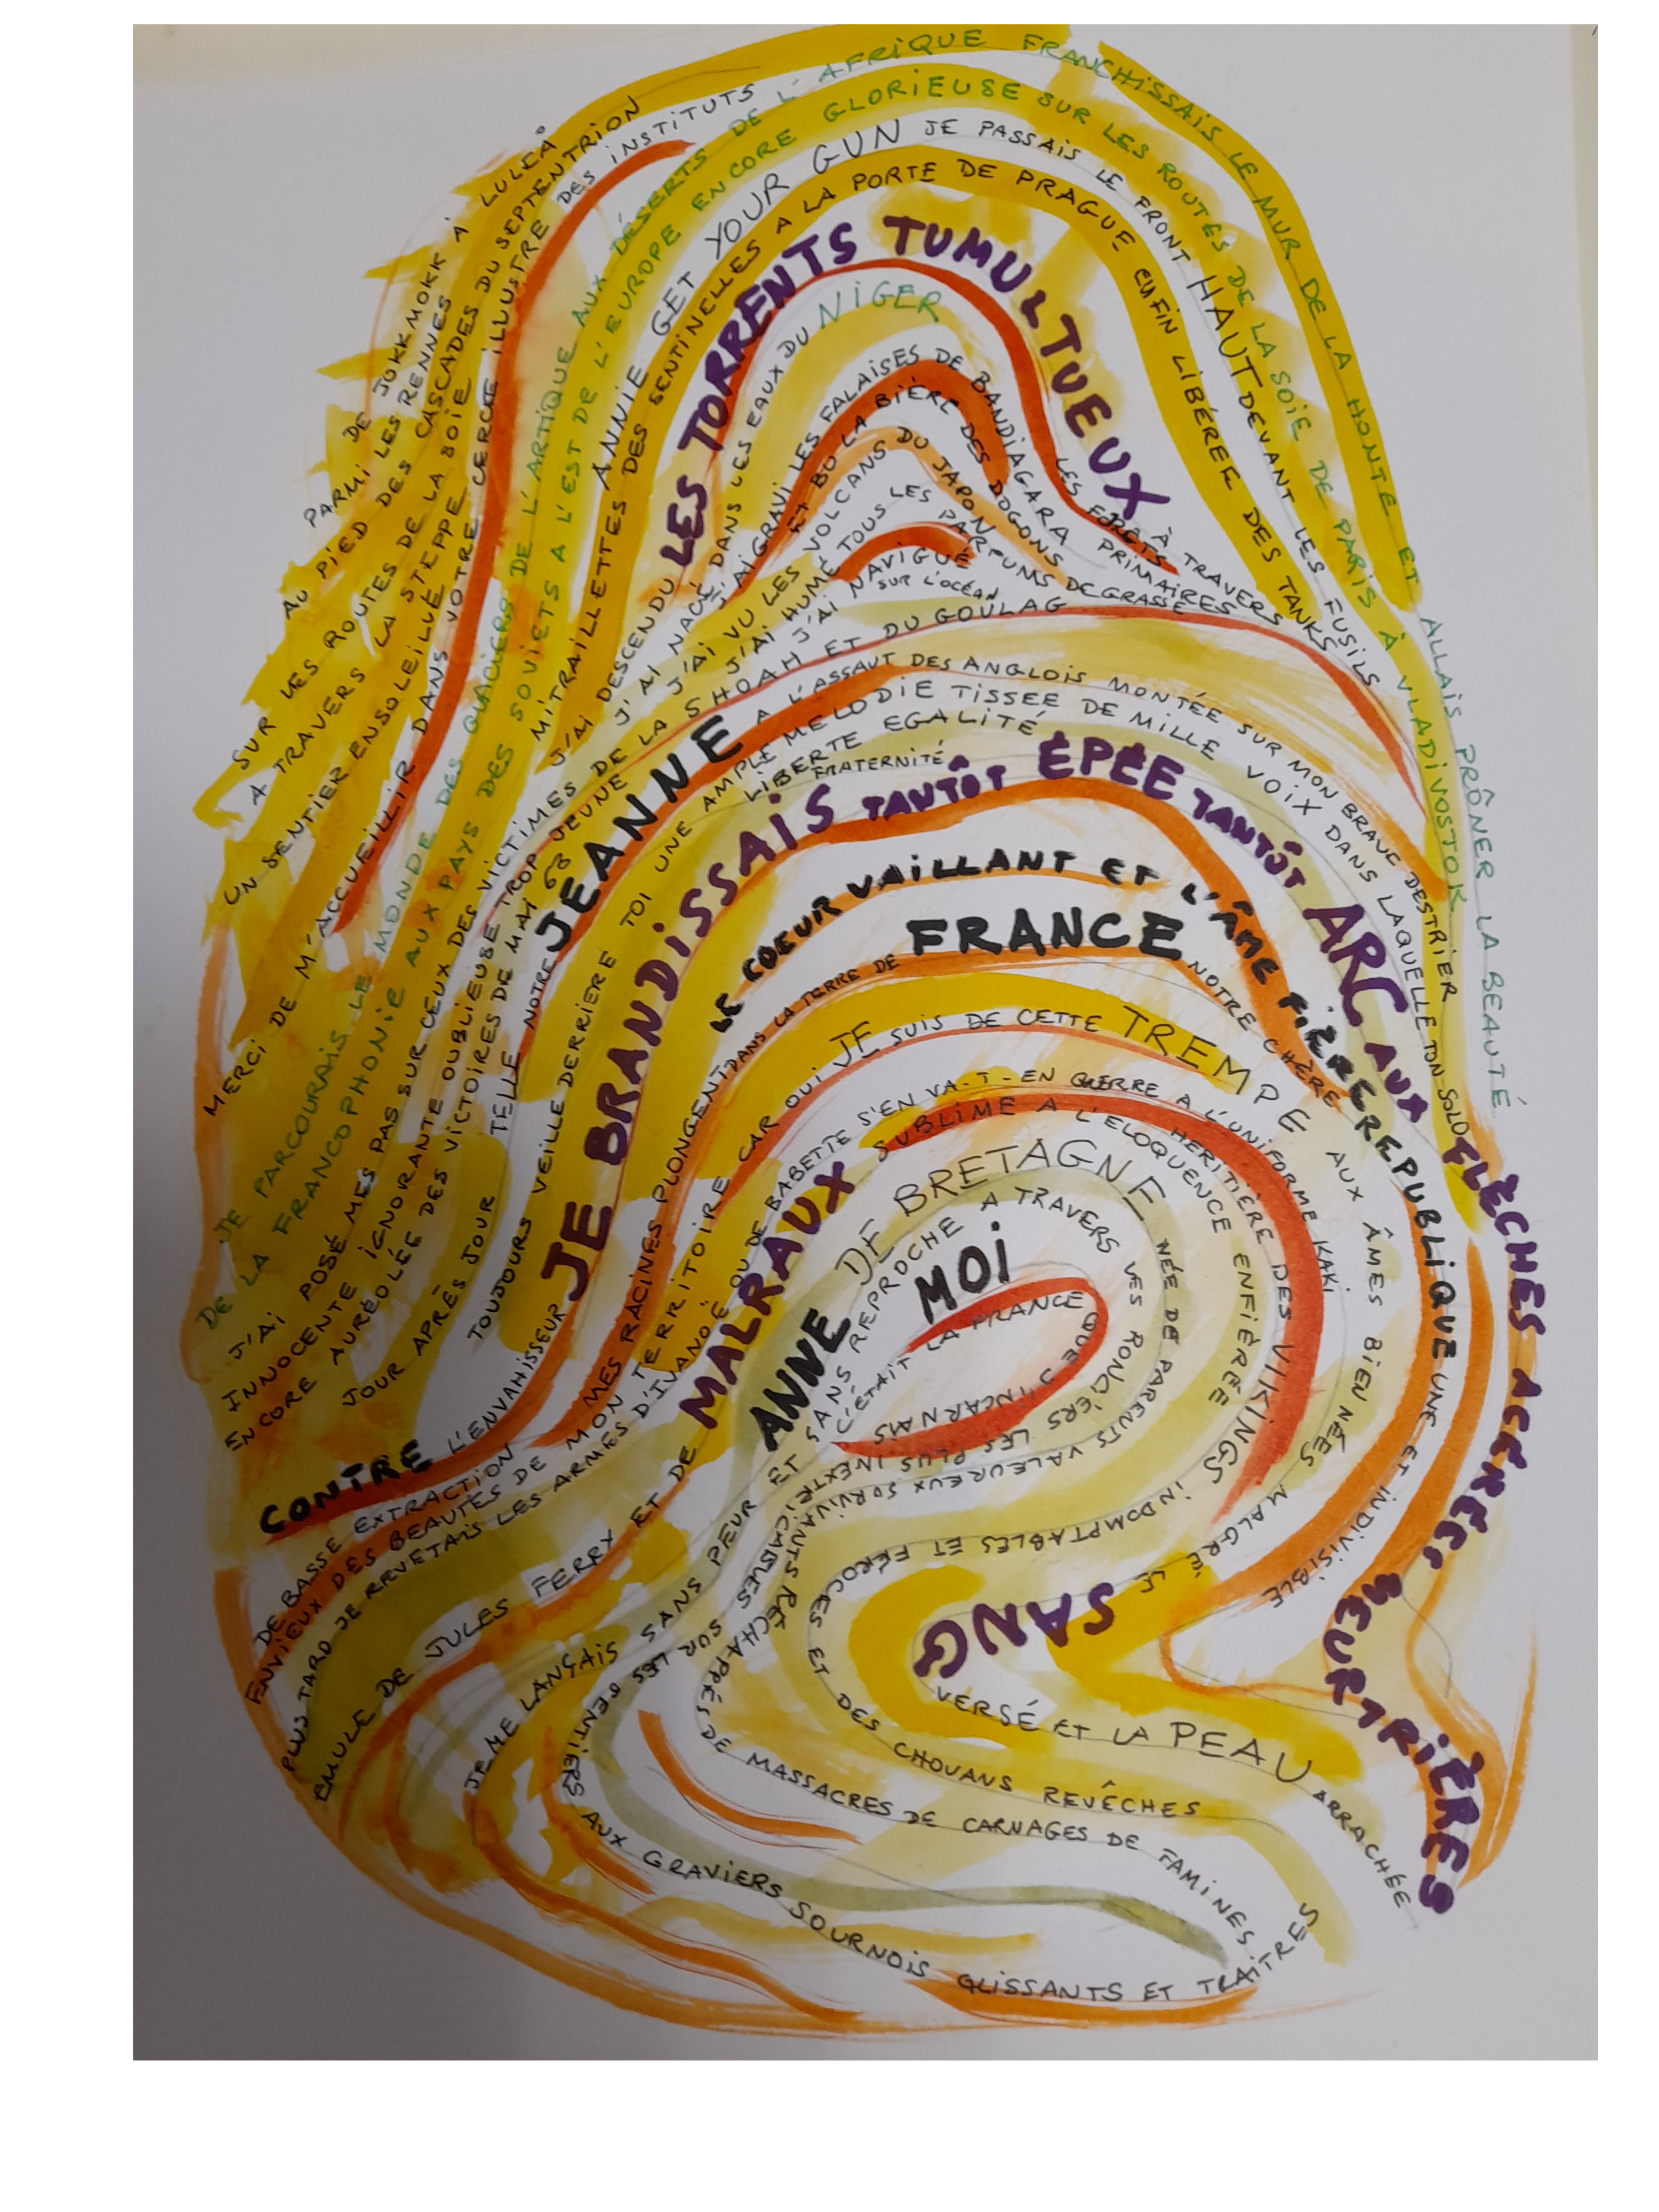 DE JOKKMOKK À LULEÅ
PARMI LES RENNES
AU PIED DES CASCADES DU SEPTENTRION
SUR LES ROUTES DE LA BOIE
A TRAVERS LA STEPPE
UN SENTIER ENSOLEILLÉ
MERCI DE M'ACCUEILLIR DANS VOTRE CERCLE ILLUSTRE DES INSTITUTS
JE PARCOURAIS LE MONDE DES GLACIERS DE L'ARTIQUE AUX DÉSERTS DE L'AFRIQUE FRANCHISSAIS LE MUR DE LA HONTE ET ALLAIS PRÔNER LA BEAUTÉ
DE LA FRANCOPHONIE AUX PAYS DES SOVIETS A L'EST DE L'EUROPE ENCORE GLORIEUSE SUR LES ROUTES DE LA SOIE DE PARIS À VLADIVOSTOK
ANNIE GET YOUR GUN JE PASSAIS LE FRONT HAUT DEVANT LES FUSILS
MITRAILLETTES DES SENTINELLES A LA PORTE DE PRAGUE ENFIN LIBÉRÉE DES TANKS
J'AI DESCENDU LES TORRENTS TUMULTUEUX À TRAVERS
LES FORÊTS PRIMAIRES
J'AI NAGÉ DANS LES EAUX DU NIGER
J'AI GRAVI LES FALAISES DE BANDIAGARA
ET BU LA BIÈRE DES DOGONS
J'AI VU LES VOLCANS DU JAPON
J'AI HUMÉ TOUS LES PARFUMS DE GRASSE
J'AI NAVIGUÉ
SUR L'OCÉAN
J'AI POSÉ MES PAS SUR CEUX DES VICTIMES DE LA SHOAH ET DU GOULAG
INNOCENTE IGNORANTE OUBLIEUSE TROP JEUNE
ENCORE AURÉOLÉE DES VICTOIRES DE MAI 68
JOUR APRÈS JOUR TELLE NOTRE JEANNE A L'ASSAUT DES ANGLOIS MONTÉE SUR MON BRAVE DESTRIER
TOUJOURS VEILLE DERRIÈRE TOI UNE AMPLE MELODIE TISSEE DE MILLE VOIX DANS LAQUELLE TON SOLO
LIBERTE EGALITÉ
FRATERNITÉ
JE BRANDISSAIS TANTÔT ÉPÉE TANTÔT ARC AUX FLÈCHES ACÉRÉES MEURTRIÈRES
CONTRE L'ENVAHISSEUR
LE COEUR VAILLANT ET L'ÂME FIÈRE REPUBLIQUE UNE ET INDIVISIBLE
DE BASSE EXTRACTION MES RACINES PLONGENT DANS LA TERRE DE FRANCE NOTRE CHÈRE
ENVIEUX DES BEAUTÉS DE MON TERRITOIRE CAR OUI JE SUIS DE CETTE TREMPE AUX ÂMES BIEN NÉES MALGRÉ LE SANG VERSÉ ET LA PEAU ARRACHÉE
PLUS TARD JE REVETAIS LES ARMES D'IVANOË OU DE BABETTE S'EN VA-T-EN GUERRE A L'UNIFORME KAKI
EMULE DE JULES FERRY ET DE MALRAUX SUBLIME A L'ELOQUENCE ENFIÉVRÉE
HERITIÈRE DES VIKINGS INDOMPTABLES ET FÉROCES ET DES CHOUANS REVÊCHES
ANNE DE BRETAGNE NÉE DE PARENTS VALEUREUX SURVIVANTS RÉCHAPPÉS DE MASSACRES DE CARNAGES DE FAMINES
JE ME LANÇAIS SANS PEUR ET SANS REPROCHE A TRAVERS LES RONCIERS LES PLUS INEXTRICABLES SUR LES SENTIERS AUX GRAVIERS SOURNOIS GLISSANTS ET TRAÎTRES
MOI
C'ÉTAIT LA FRANCE QUE J'INCARNAIS